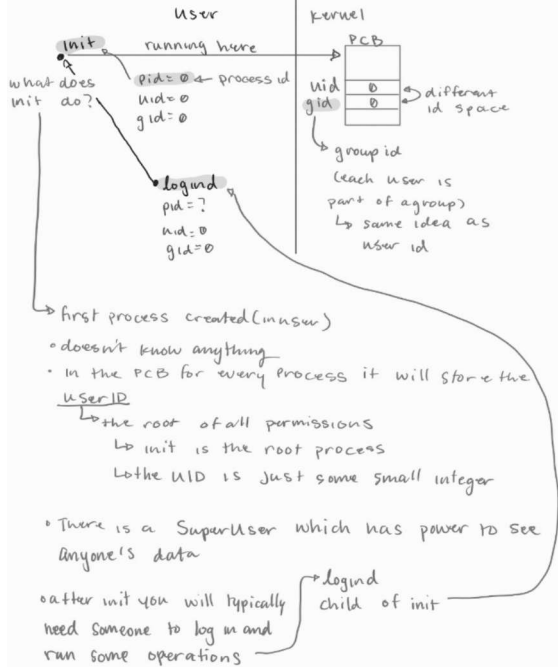 user
kernel
init
running here
PCB
what does
init do?
pid = 0 ← process id
uid = 0
gid = 0
uid 0
gid 0
different
id space
group id
(each user is
part of a group)
↳ same idea as
user id
logind
pid = ?
uid = 0
gid = 0
first process created (in user)
• doesn't know anything
• In the PCB for every process it will store the
userID
↳ the root of all permissions
↳ init is the root process
↳ the UID is just some small integer
• There is a SuperUser which has power to see
anyone's data
• after init you will typically
need someone to log in and
run some operations
logind
child of init